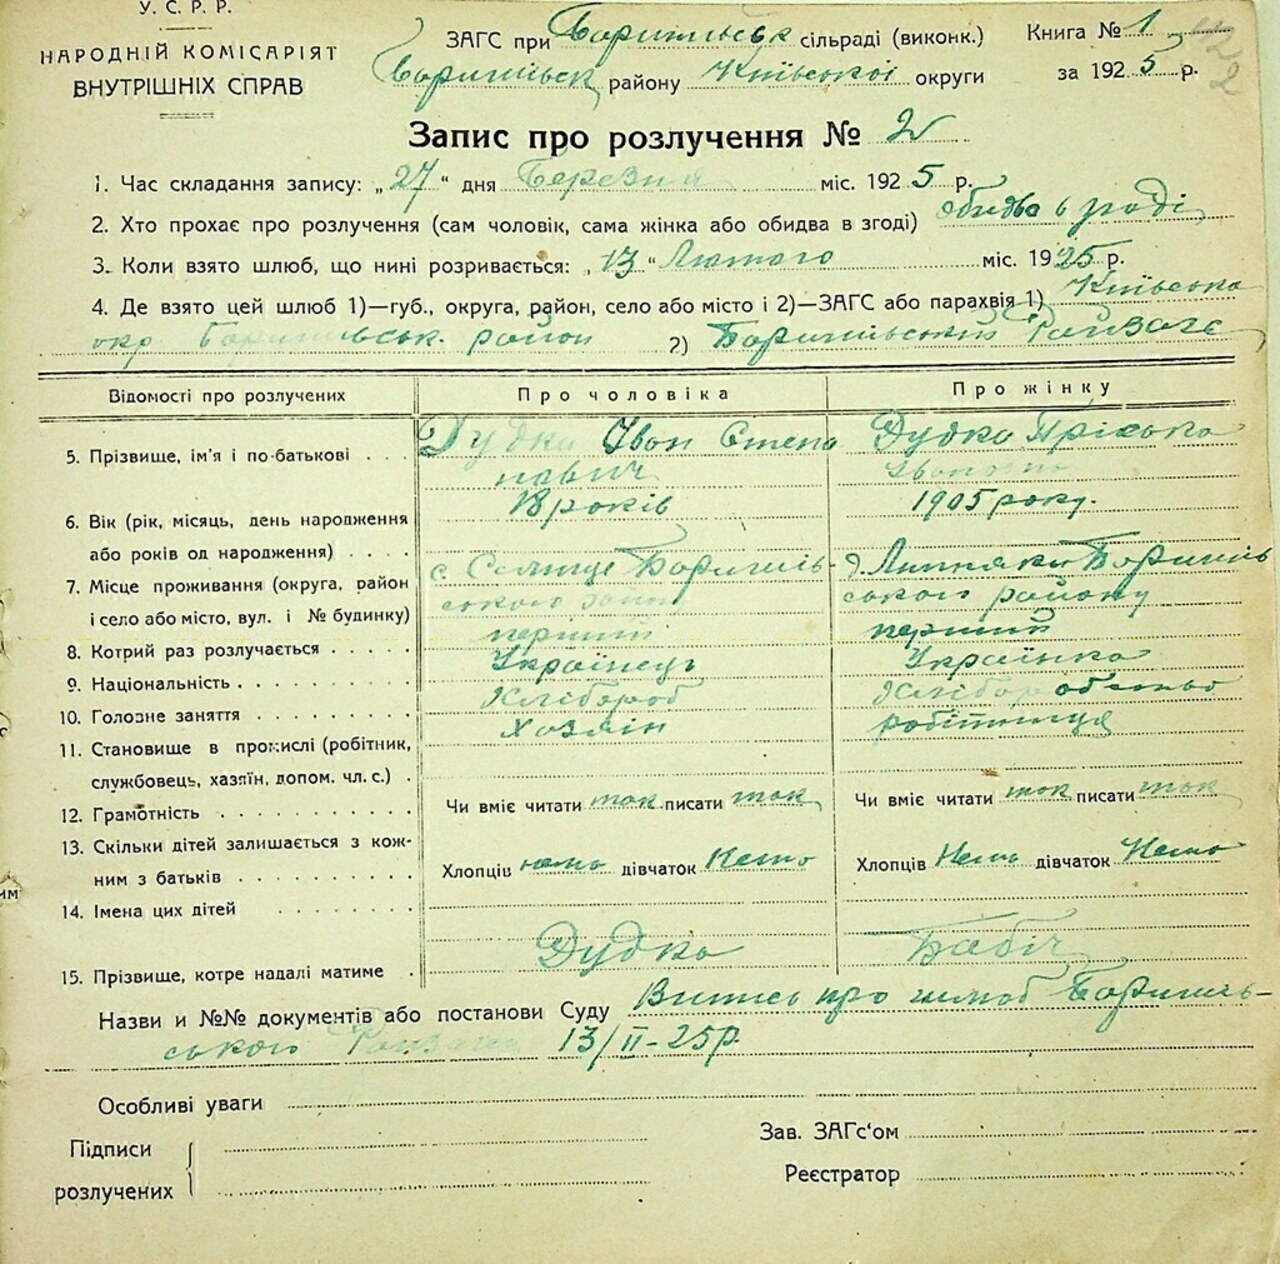 У. С. Р. Р.
НАРОДНІЙ КОМІСАРІЯТ
ВНУТРІШНІХ СПРАВ
ЗАГС при Боришільськ сільраді (виконк.)
Боришільск району Київської округи
Книга № 1
за 1925 р.
Запис про розлучення № 2
1. Час складання запису: „27“ дня Березня міс. 1925 р.
2. Хто прохає про розлучення (сам чоловік, сама жінка або обидва в згоді) обидва в
3. Коли взято шлюб, що нині розривається: „13“ Лютого міс. 1925 р.
4. Де взято цей шлюб 1)—губ., округа, район, село або місто і 2)—ЗАГС або парахвія 1) Київська
окр район 2) Боришільський
Відомості про розлучених Про чоловіка Про жінку
5. Прізвище, ім'я і по-батькові Дудка Іван Степа
навич
Дудка Пріська
Івановна
6. Вік (рік, місяць, день народження
або років од народження)
18 років
1905 року.
7. Місце проживання (округа, район
і село або місто, вул. і № будинку)
с. Боришіль-
ського
Боришіль
ського району
8. Котрий раз розлучається перший перший
9. Національність Українець Українка
10. Головне заняття Хлібороб
11. Становище в промислі (робітник,
службовець, хазяїн, допом. чл. с.)
Хозяін робітниця
12. Грамотність Чи вміє читати так писати так Чи вміє читати так писати так
13. Скільки дітей залишається з кож-
ним з батьків
Хлопців нема дівчаток Нема Хлопців Нема дівчаток Нема
14. Імена цих дітей
15. Прізвище, котре надалі матиме Дудка Бабіч
Назви и №№ документів або постанови Суду Витись про шлюб Боришіль-
ського 13/II-25р.
Особливі уваги
Підписи
розлучених
Зав. ЗАГс'ом
Реєстратор